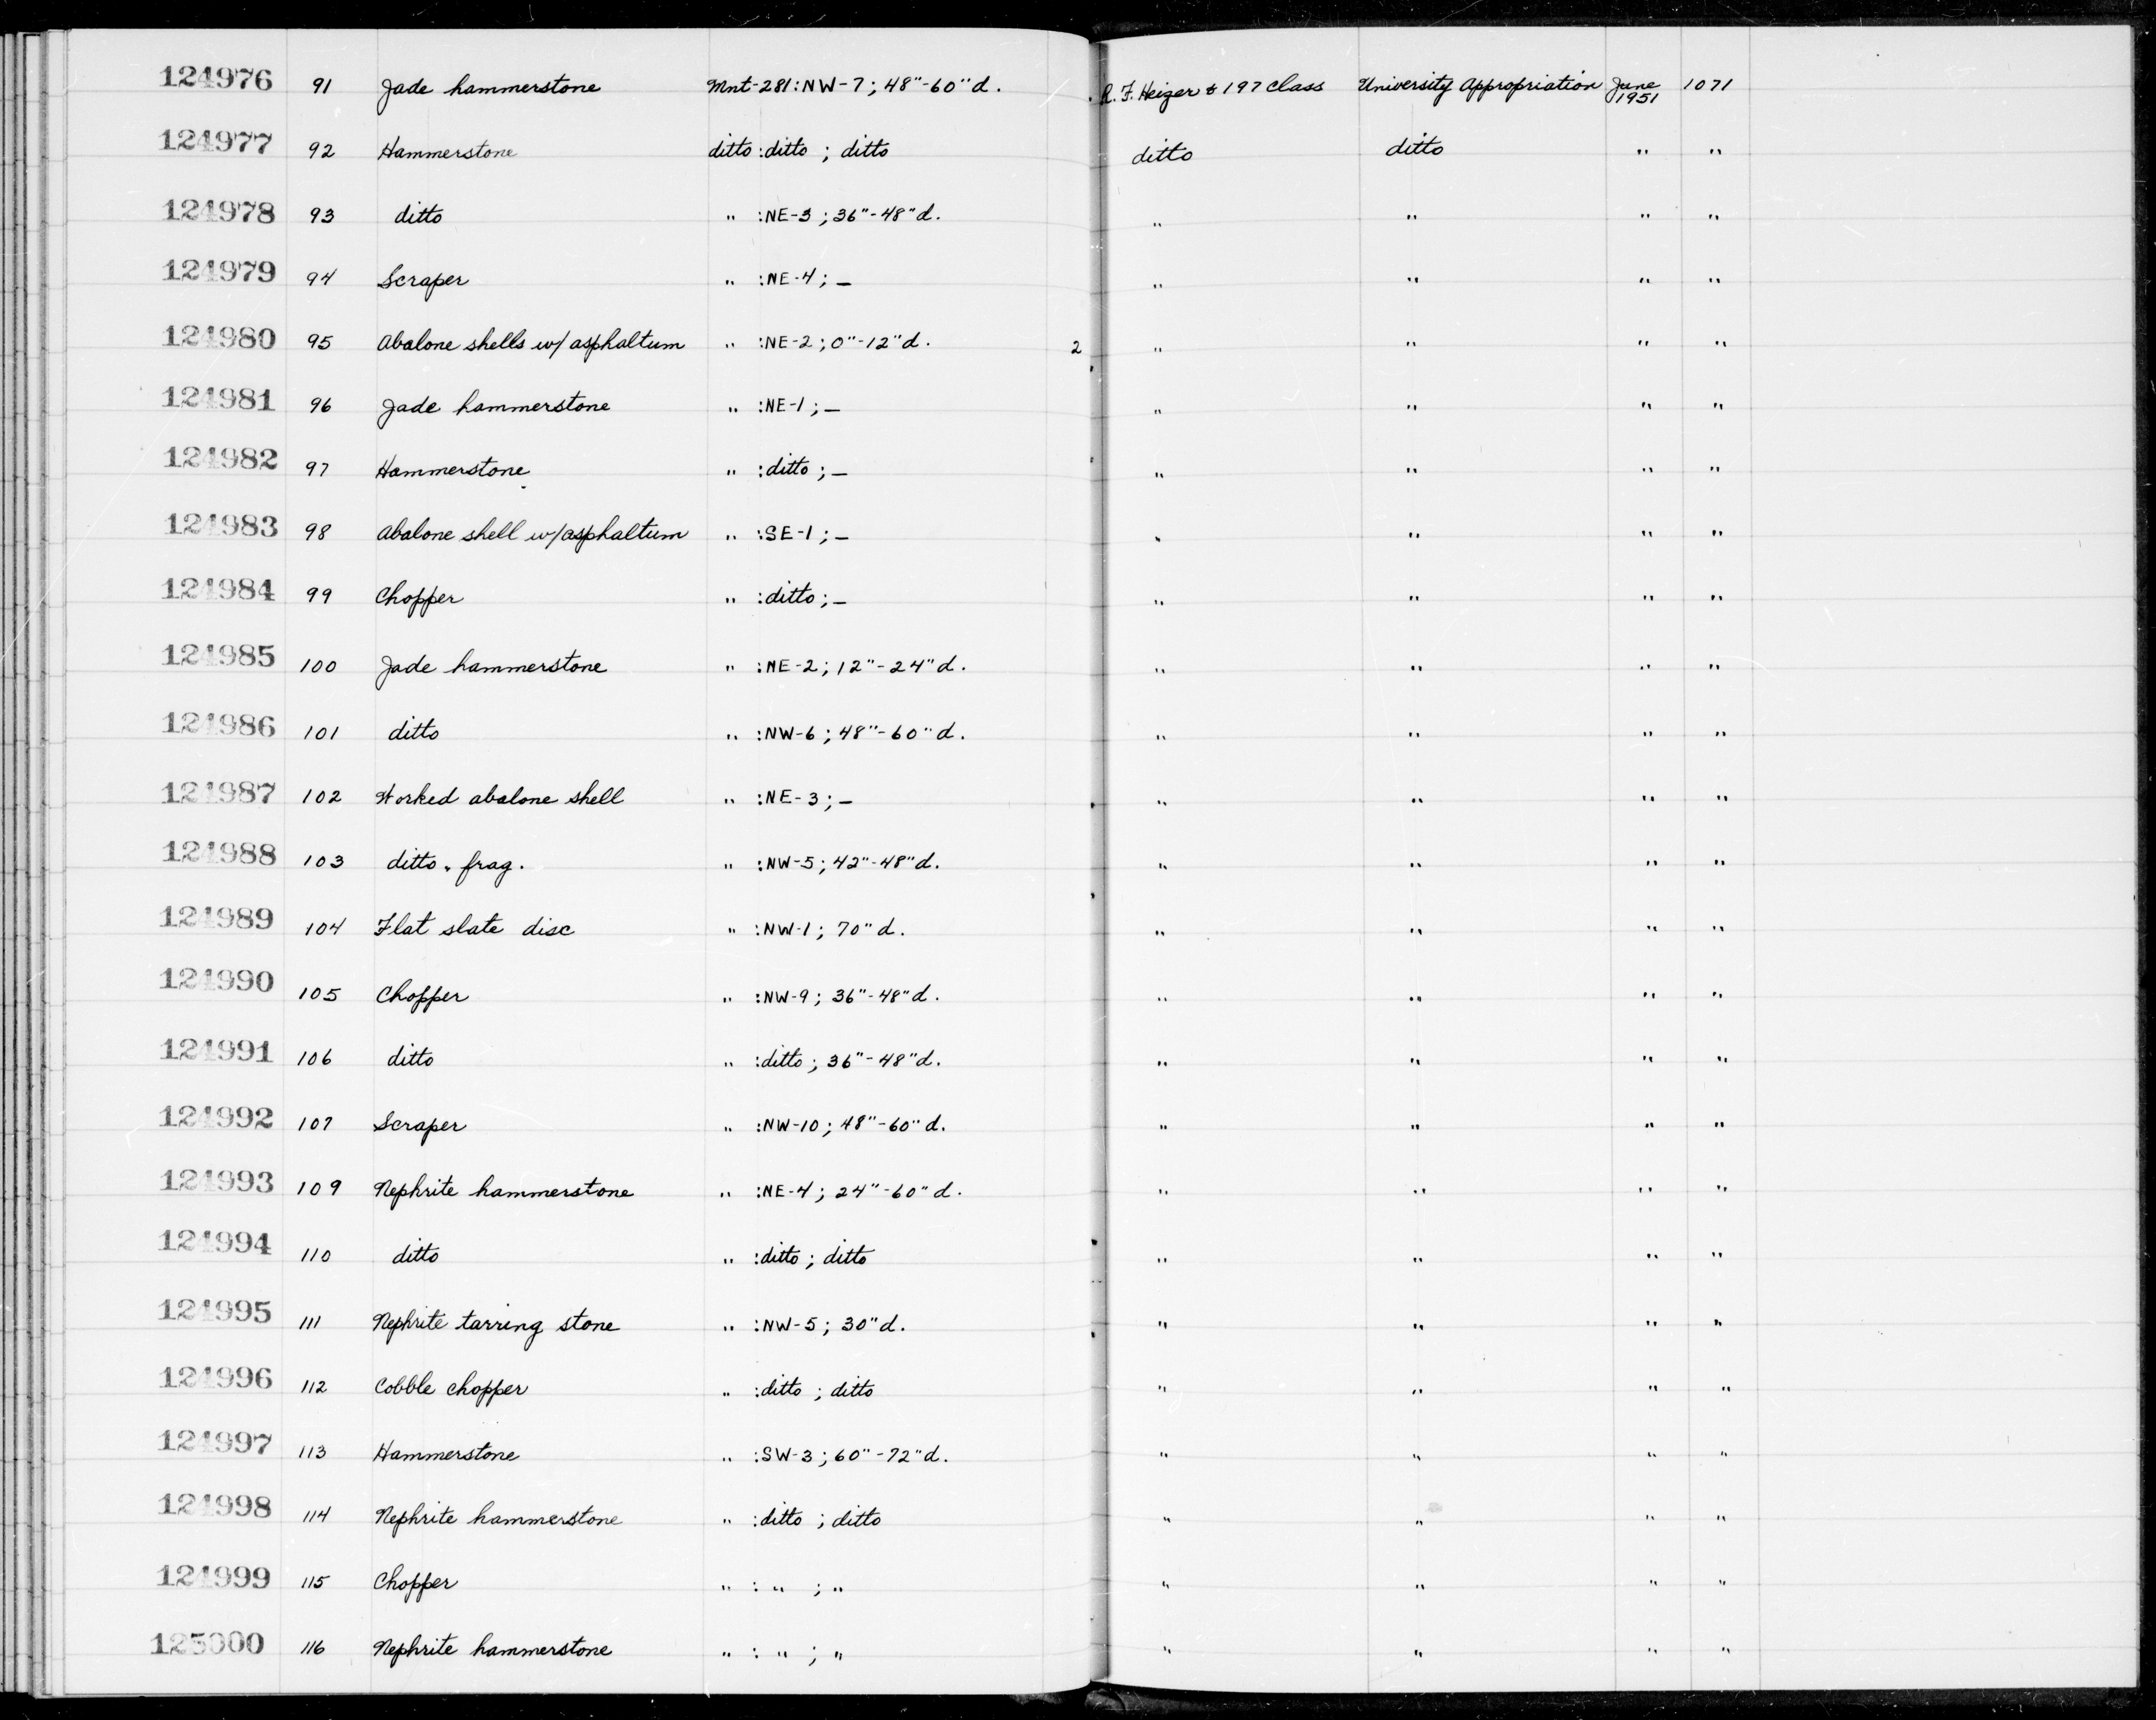 124976 91 Jade hammerstone Mnt-281:NW-7; 48"-60"d. R.F. Heizer & 197 Class University Appropriation June 1951 1071
124977 92 Hammerstone ditto :ditto ; ditto ditto ditto " "
124978 93 ditto " :NE-3 ; 36"-48"d. " " " "
124979 94 Scraper " :NE-4 ; — " " " "
124980 95 Abalone shells w/ asphaltum " :NE-2 ; 0"-12"d. 2 " " " "
124981 96 Jade hammerstone " :NE-1 ; — " " " "
124982 97 Hammerstone " :ditto ; — " " " "
124983 98 Abalone shell w/ asphaltum " :SE-1 ; — " " " "
124984 99 Chopper " :ditto ; — " " " "
124985 100 Jade hammerstone " :NE-2 ; 12"-24"d. " " " "
124986 101 ditto " :NW-6 ; 48"-60"d. " " " "
124987 102 Worked abalone shell " :NE-3 ; — " " " "
124988 103 ditto, frag. " :NW-5 ; 42"-48"d. " " " "
124989 104 Flat slate disc " :NW-1 ; 70"d. " " " "
124990 105 Chopper " :NW-9 ; 36"-48"d. " " " "
124991 106 ditto " :ditto ; 36"-48"d. " " " "
124992 107 Scraper " :NW-10 ; 48"-60"d. " " " "
124993 109 Nephrite hammerstone " :NE-4 ; 24"-60"d. " " " "
124994 110 ditto " :ditto ; ditto " " " "
124995 111 Nephrite tarring stone " :NW-5 ; 30"d. " " " "
124996 112 Cobble chopper " :ditto ; ditto " " " "
124997 113 Hammerstone " :SW-3 ; 60"-72"d. " " " "
124998 114 Nephrite hammerstone " :ditto ; ditto " " " "
124999 115 Chopper " : " ; " " " " "
125000 116 Nephrite hammerstone " : " ; " " " " "